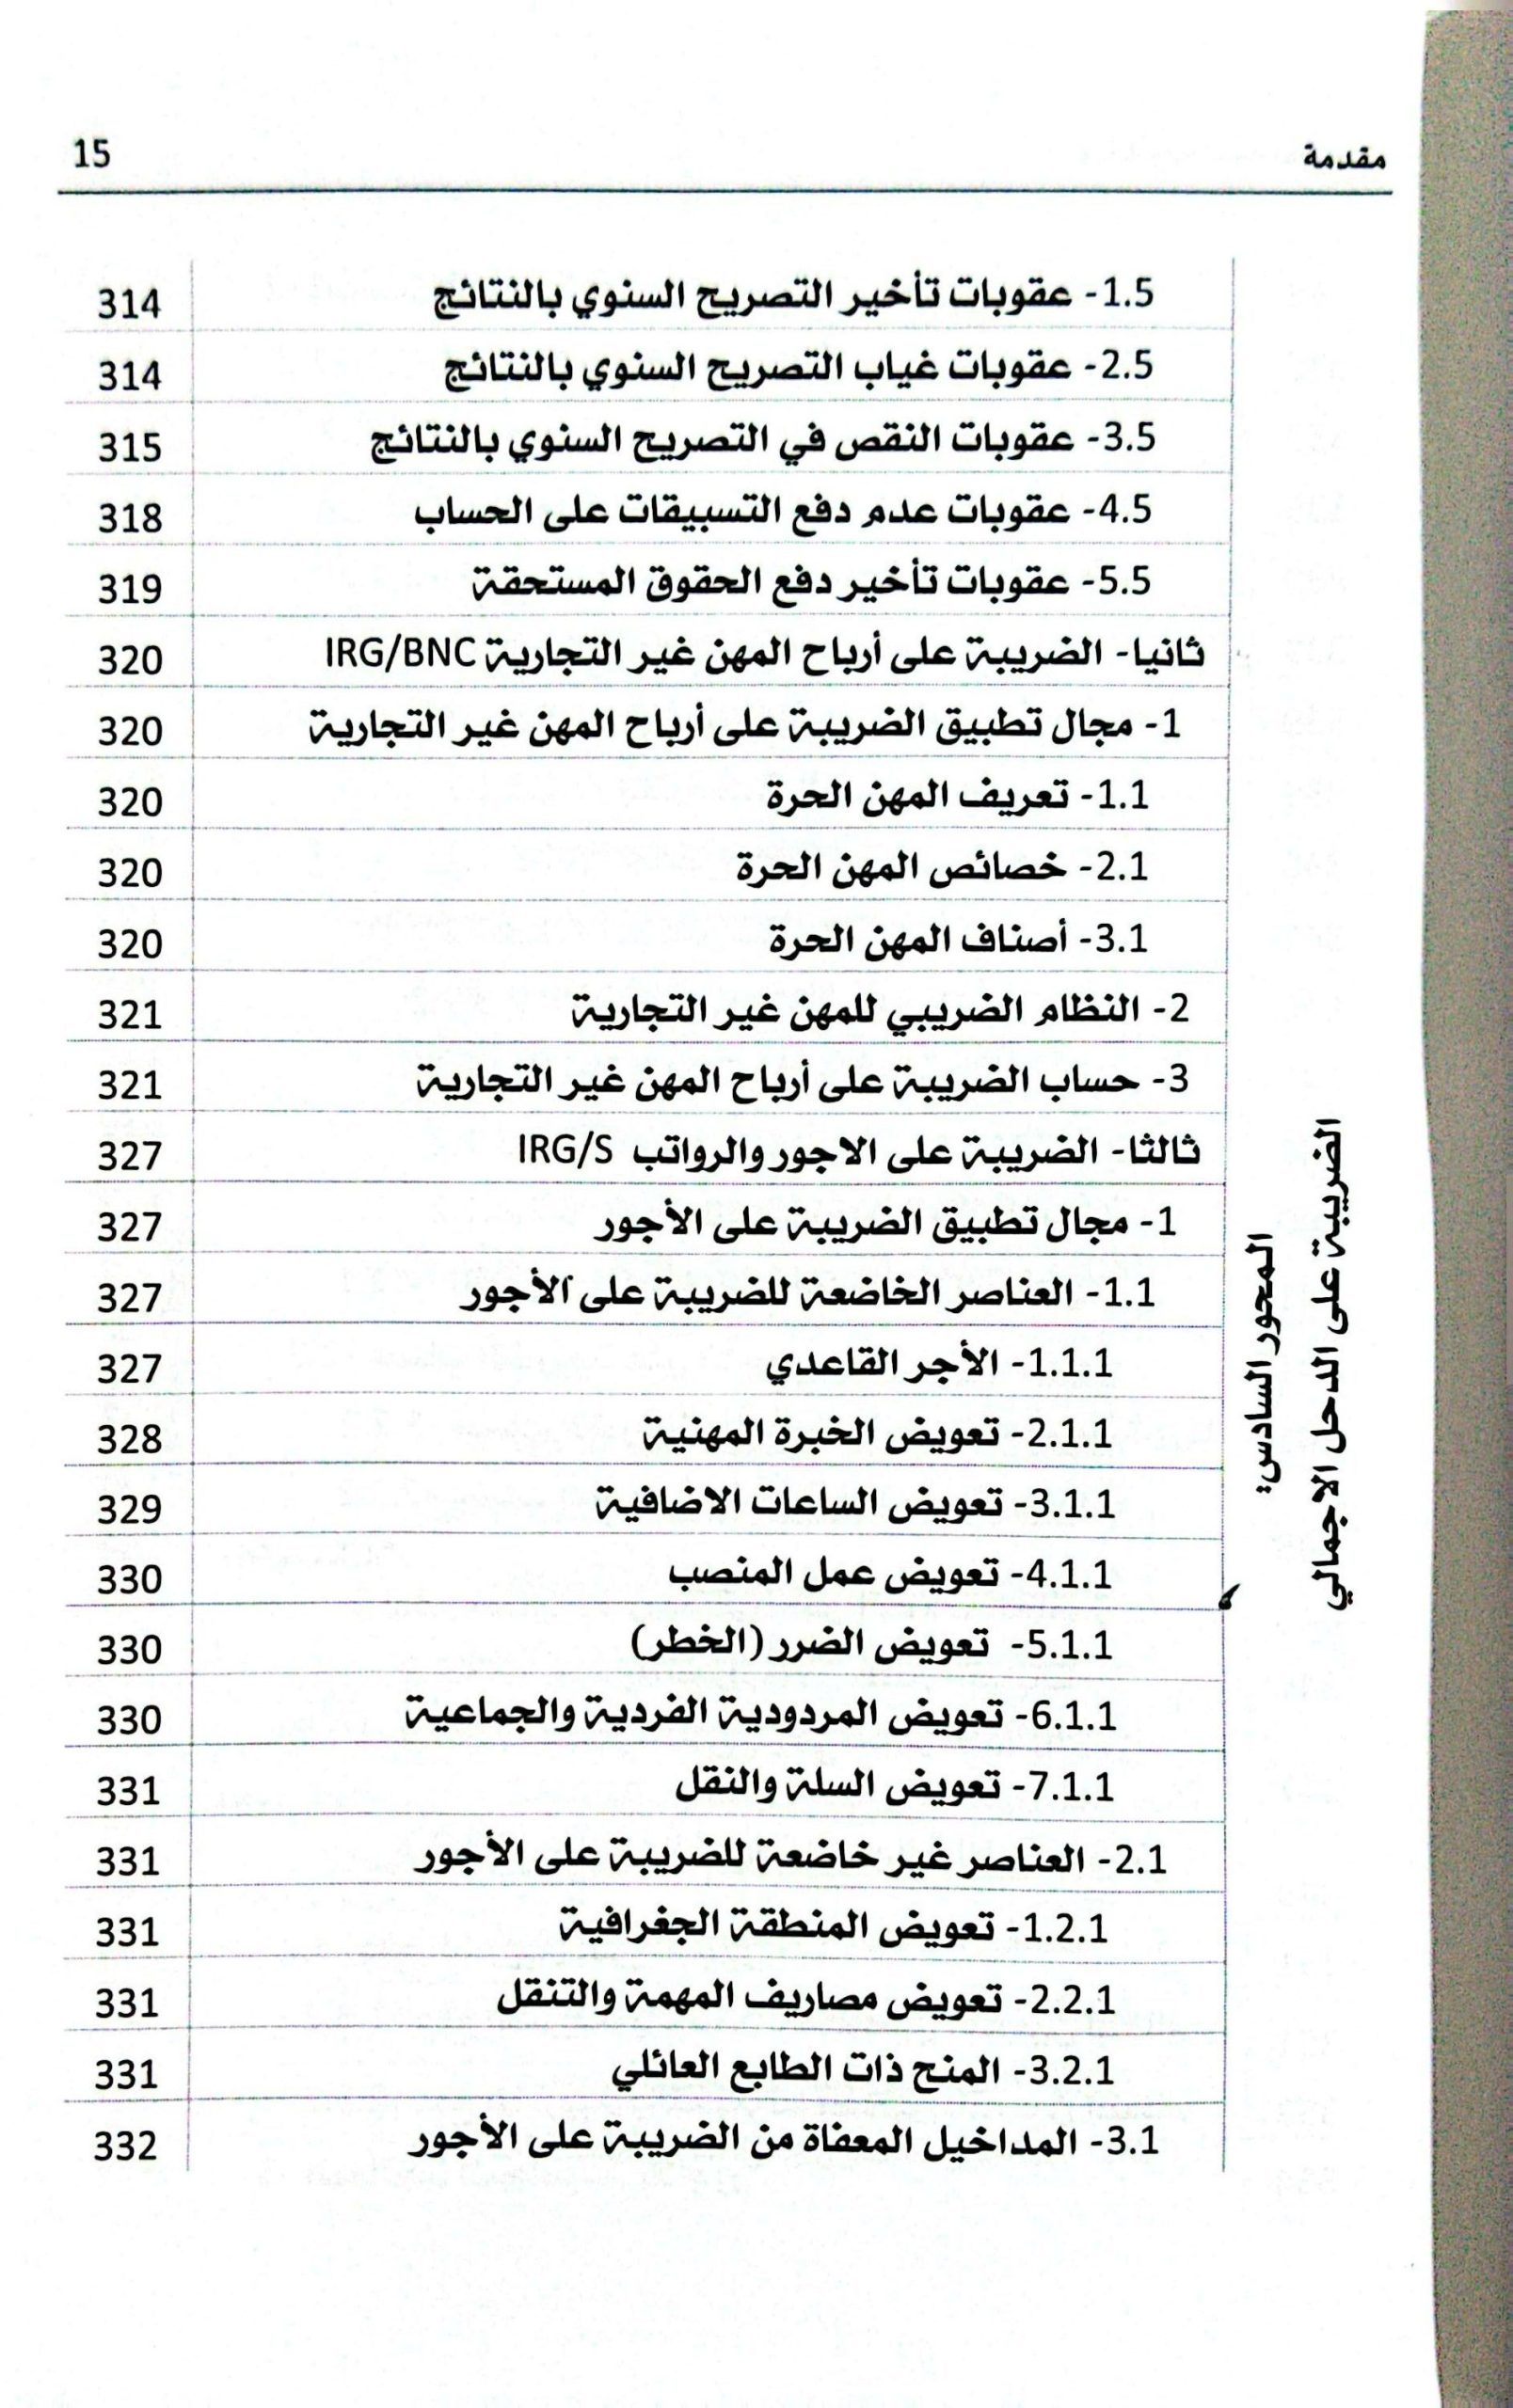 مقدمة 15
المحور السادس:
الضريبة على الدخل الاجمالي
1.5- عقوبات تأخير التصريح السنوي بالنتائج 314
2.5- عقوبات غياب التصريح السنوي بالنتائج 314
3.5- عقوبات النقص في التصريح السنوي بالنتائج 315
4.5- عقوبات عدم دفع التسبيقات على الحساب 318
5.5- عقوبات تأخير دفع الحقوق المستحقة 319
ثانيا- الضريبة على أرباح المهن غير التجارية IRG/BNC 320
1- مجال تطبيق الضريبة على أرباح المهن غير التجارية 320
1.1- تعريف المهن الحرة 320
2.1- خصائص المهن الحرة 320
3.1- أصناف المهن الحرة 320
2- النظام الضريبي للمهن غير التجارية 321
3- حساب الضريبة على أرباح المهن غير التجارية 321
ثالثا- الضريبة على الاجور والرواتب IRG/S 327
1- مجال تطبيق الضريبة على الأجور 327
1.1- العناصر الخاضعة للضريبة على الأجور 327
1.1.1- الأجر القاعدي 327
2.1.1- تعويض الخبرة المهنية 328
3.1.1- تعويض الساعات الاضافية 329
4.1.1- تعويض عمل المنصب 330
5.1.1- تعويض الضرر (الخطر) 330
6.1.1- تعويض المردودية الفردية والجماعية 330
7.1.1- تعويض السلة والنقل 331
2.1- العناصر غير خاضعة للضريبة على الأجور 331
1.2.1- تعويض المنطقة الجغرافية 331
2.2.1- تعويض مصاريف المهمة والتنقل 331
3.2.1- المنح ذات الطابع العائلي 331
3.1- المداخيل المعفاة من الضريبة على الأجور 332